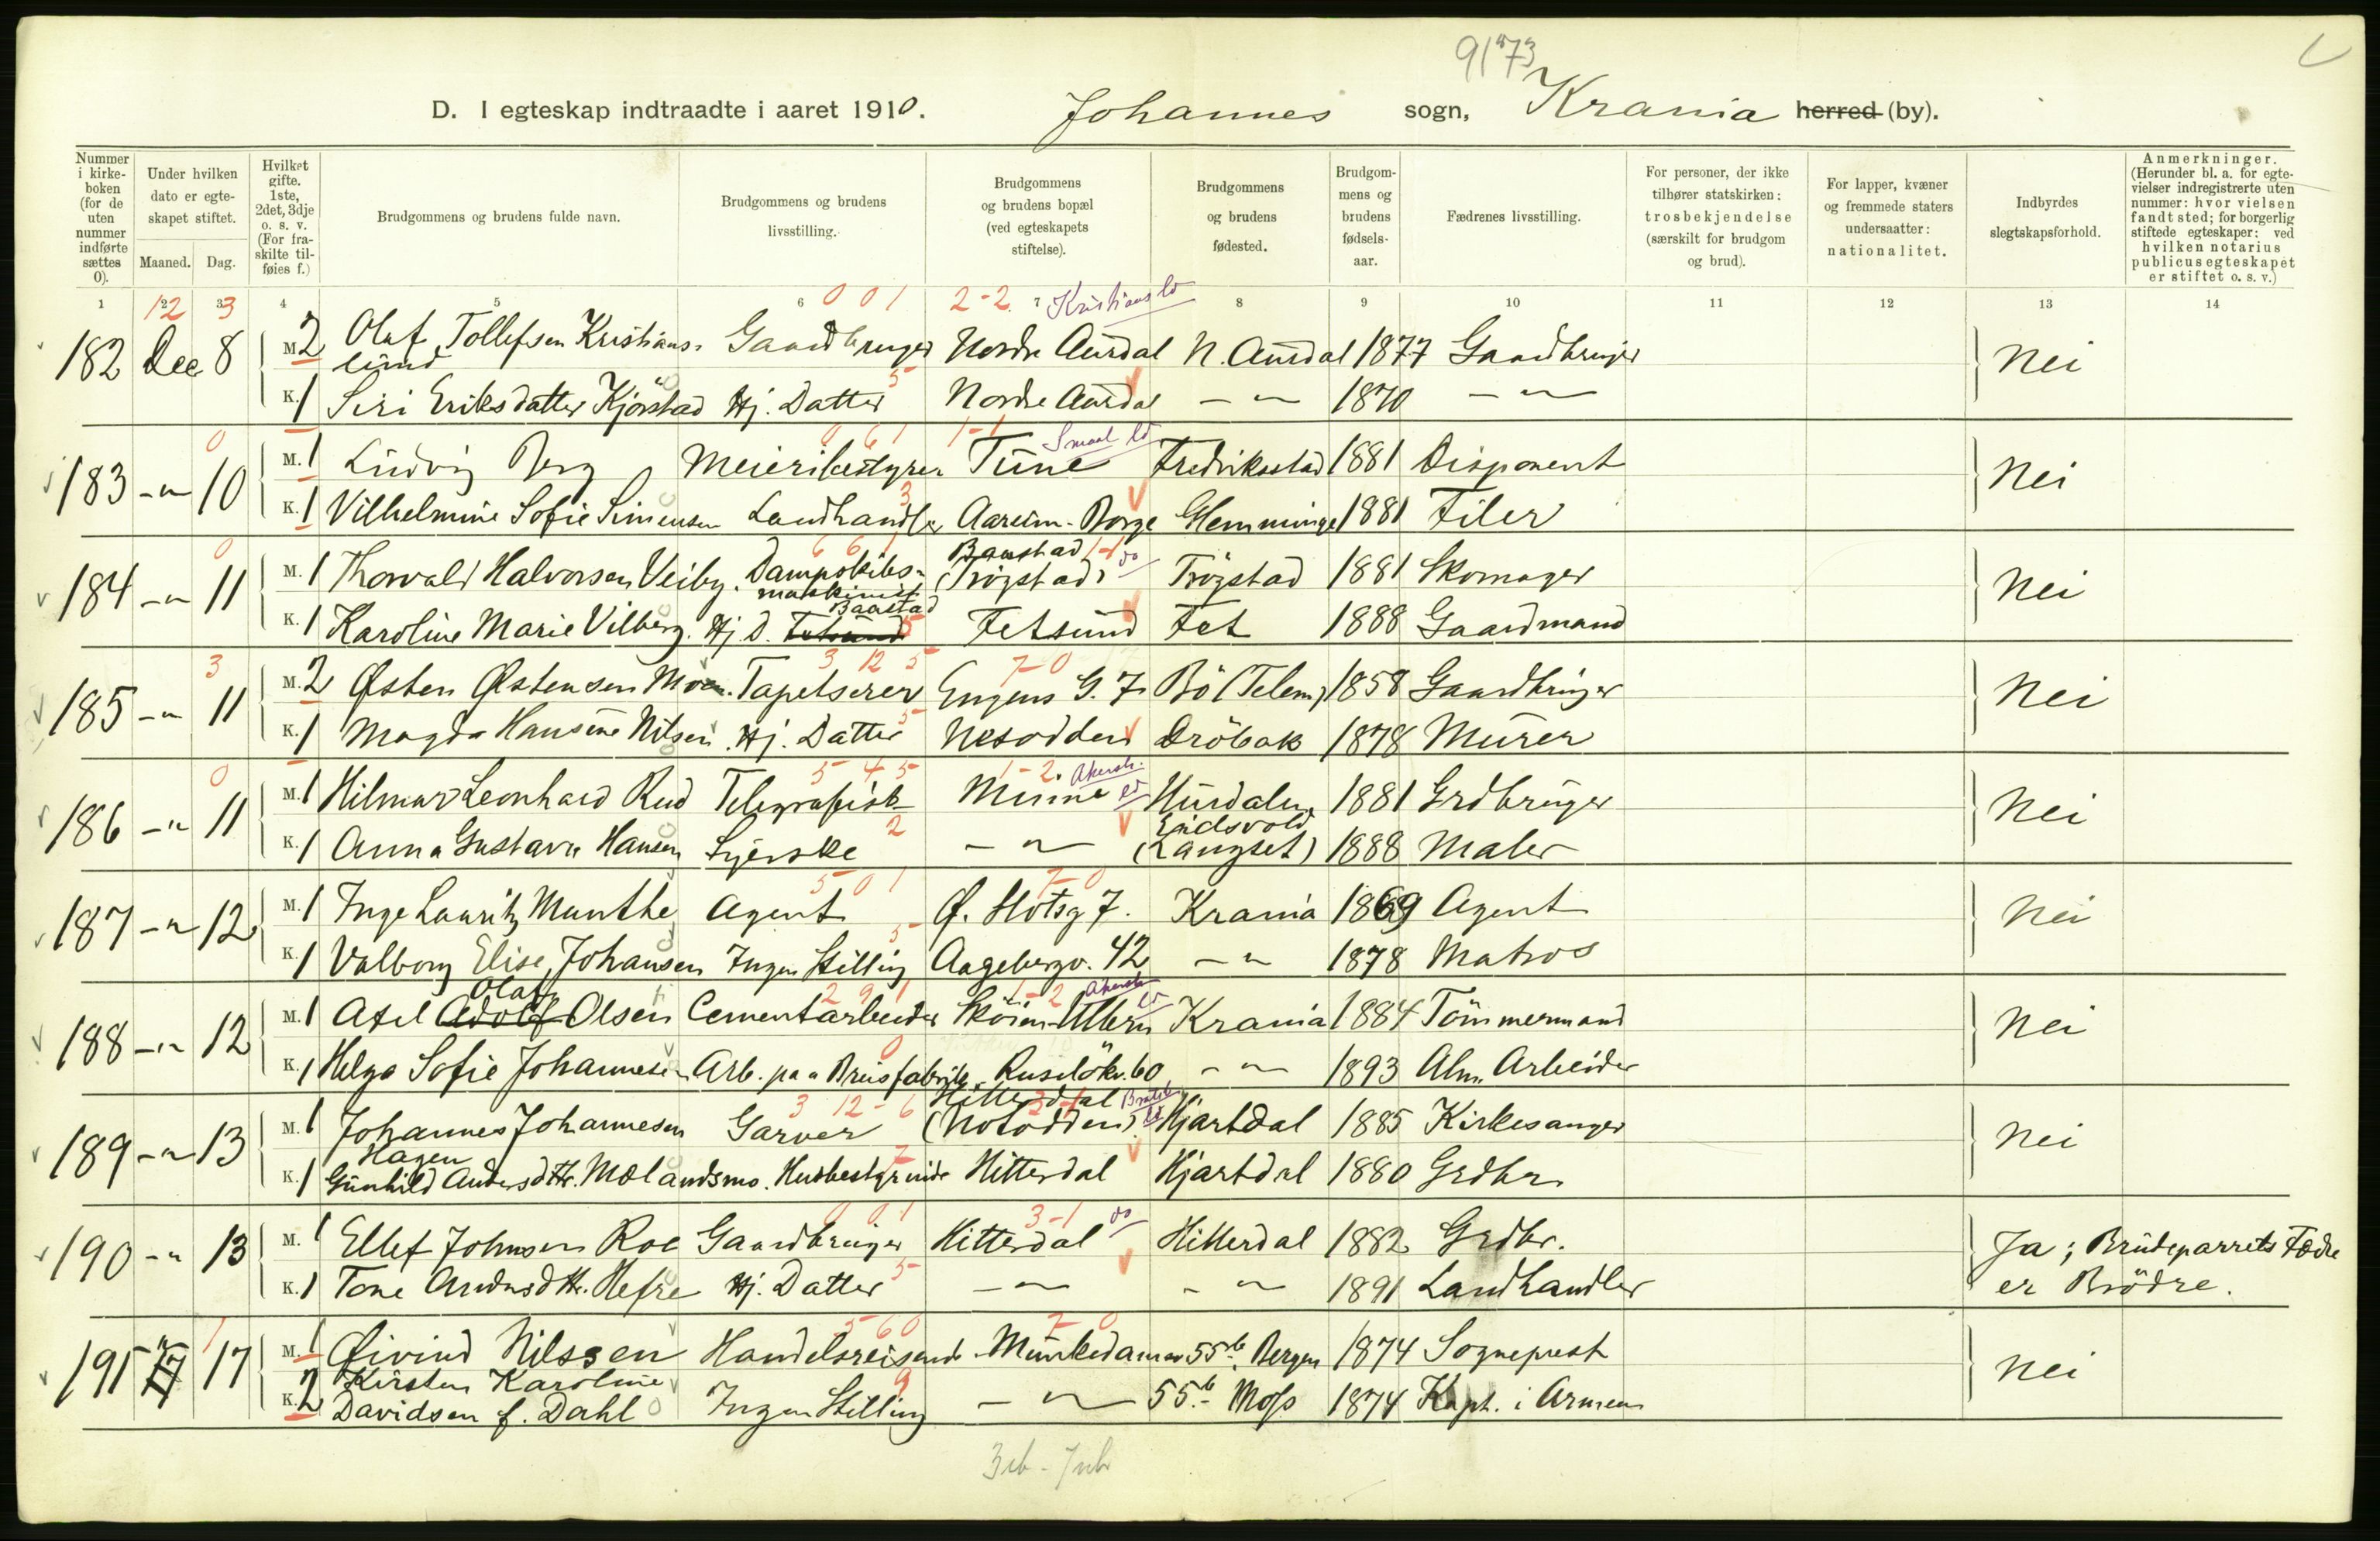 9173
D. I egteskap indtraadte i aaret 1910. Johannes sogn, Krania herred (by).
Nummer i kirkeboken (for de uten nummer indførte sættes 0).
Under hvilken dato er egteskapet stiftet.
Maaned. Dag.
Hvilket gifte. 1ste, 2det, 3dje o. s. v. (For fraskilte tilføies f.)
Brudgommens og brudens fulde navn.
Brudgommens og brudens livsstilling.
Brudgommens og brudens bopæl (ved egteskapets stiftelse).
Brudgommens og brudens fødested.
Brudgommens og brudens fødselsaar.
Fædrenes livsstilling.
For personer, der ikke tilhører statskirken: trosbekjendelse (særskilt for brudgom og brud).
For lapper, kvæner og fremmede staters undersaatter: nationalitet.
Indbyrdes slegtskapsforhold.
Anmerkninger. (Herunder bl. a. for egtevielser indregistrerte uten nummer: hvor vielsen fandt sted; for borgerlig stiftede egteskaper: ved hvilken notarius publicus egteskapet er stiftet o. s. v.)
1 2 3 4 5 6 7 8 9 10 11 12 13 14
12 3 0 0 1 2-2 Kristians
182 Dec 8 M. 2 Olaf Tollefsen Kristianslund Gaardbruger Nordre Aurdal N. Aurdal 1877 Gaardbruger Nei
K. 1 Siri Eriksdatter Kjörstad Hj. Datter 5 Nordre Aurdal — " — 1870 — " —
0 0 6 1 1-1 Smaal
183 - " - 10 M. 1 Ludvig Berg Meieribestyrer Tune Fredriksstad 1881 Disponent Nei
K. 1 Vilhelmine Sofie Simensen Landhandler 3 Aareim - Borge Glemminge 1881 Filer
0 6 6 1 Baastad 1-1 do
184 - " - 11 M. 1 Thorvald Halvorsen Veiby. Dampskibsmaskinist (Trögstad) Trögstad 1881 Skomager Nei
K. 1 Karoline Marie Vilberg. Hj. D. Fetsund Baastad 5 Fetsund Fet 1888 Gaardmand
3 3 12 5 7-0
185 - " - 11 M. 2 Østen Østensen Moen. Tapetserer Eugens G. 7 Bö (Telem.) 1858 Gaardbruger Nei
K. 1 Magda Hansine Nilsen. Hj. Datter 5 Nesodden Dröbak 1878 Murer
0 5 4 5 1-2 Akersh.
186 - " - 11 M. 1 Hilmar Leonhard Rud Telegrafist Minne Hurdalen 1881 Grdbruger Nei
K. 1 Anna Gustava Hansen Syerske 2 — " — Eidsvold (Langset) 1888 Maler
5 0 1 7-0
187 - " - 12 M. 1 Inge Lauritz Munthe Agent Ø. Slotsg 7. Krania 1869 Agent Nei
K. 1 Valborg Elise Johansen Ingen Stilling 5 Aagebergv. 42 — " — 1878 Matros
Olaf 2 9 1 1-2 Akersh
188 - " - 12 M. 1 Axel Adolf Olsen Cementarbeider Sköien Ullern Krania 1884 Tömmermand Nei
K. 1 Helga Sofie Johannesen Arb. paa Preisfabrik 0 Ruselökv. 60 — " — 1893 Alm. Arbeider
3 12 - 6 Hitterdal 3-1 Bratsb
189 - " - 13 M. 1 Johannes Johannesen Hagen Garver (Notodden). Hjartdal 1885 Kirkesanger Nei
K. 1 Gunhild Andersdtr. Molandsmo. Husbestyrinde 7 Hitterdal Hjartdal 1880 Grdbr.
0 0 1 3-1 do
190 - " - 13 M. 1 Ellef Johnsen Roe Gaardbruger Hitterdal Hitterdal 1882 Grdbr. Ja; Brudeparrets Fædre er Brödre.
K. 1 Tone Andersdtr. Hefre Hj. Datter 5 — " — — " — 1891 Landhandler
1 5 6 0 7-0
191 17 17 M. 1 Øivind Nilssen Handelsreisende Munkedamsv 55b. Bergen 1874 Sogneprest Nei
K. 2 Kirsten Karoline Davidsen f. Dahl Ingen Stilling 9 — " — 55.b Moss 1874 Kapt. i Armeen
3 ub - 7 ub